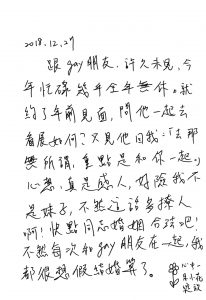 2018.12.27
跟gay朋友,許久未見,今
年忙碌幾乎全年無休。就
約了年前見面,問他一起去
看展如何?又見他回我:「去那
無所謂,重點是和你一起」
心想,真是感人,好險我不
是妹子,不然這話多撩人
啊!快點同志婚姻合法吧!
不然每次和gay朋友在一起,我
都很想假結婚算了。
心中一